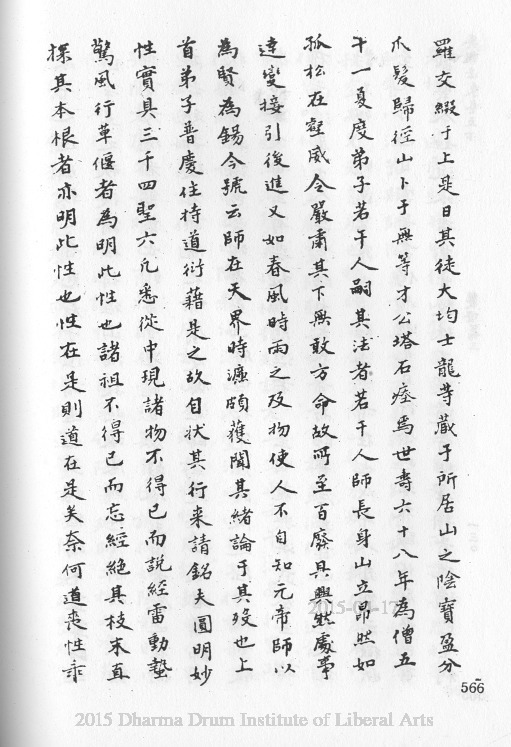 羅交綴于上是日其徒大均士龍等蔵于所居山之陰寶盈分
爪髮歸徑山卜于無等才公塔石瘞焉世壽六十八年為僧五
十一夏度弟子若干人嗣其法者若干人師長身山立昂然如
孤松在壑威令嚴肅其下無敢方命故所至百廢具興然處事
達變接引後進又如春風時雨之及物使人不自知元帝師以
為賢為錫今號云師在天界時濂頗獲聞其緒論于其歿也上
首弟子普慶住持道衍藉是之故自状其行来請銘夫圓明妙
性實具三千四聖六凡悉從中現諸物不得已而說經雷動蟄
驚風行草偃者為明此性也諸祖不得已而忘經絕其枝末直
探其本根者亦明此性也性在是則道在是矣奈何道喪性乖
566
2015 Dharma Drum Institute of Liberal Arts